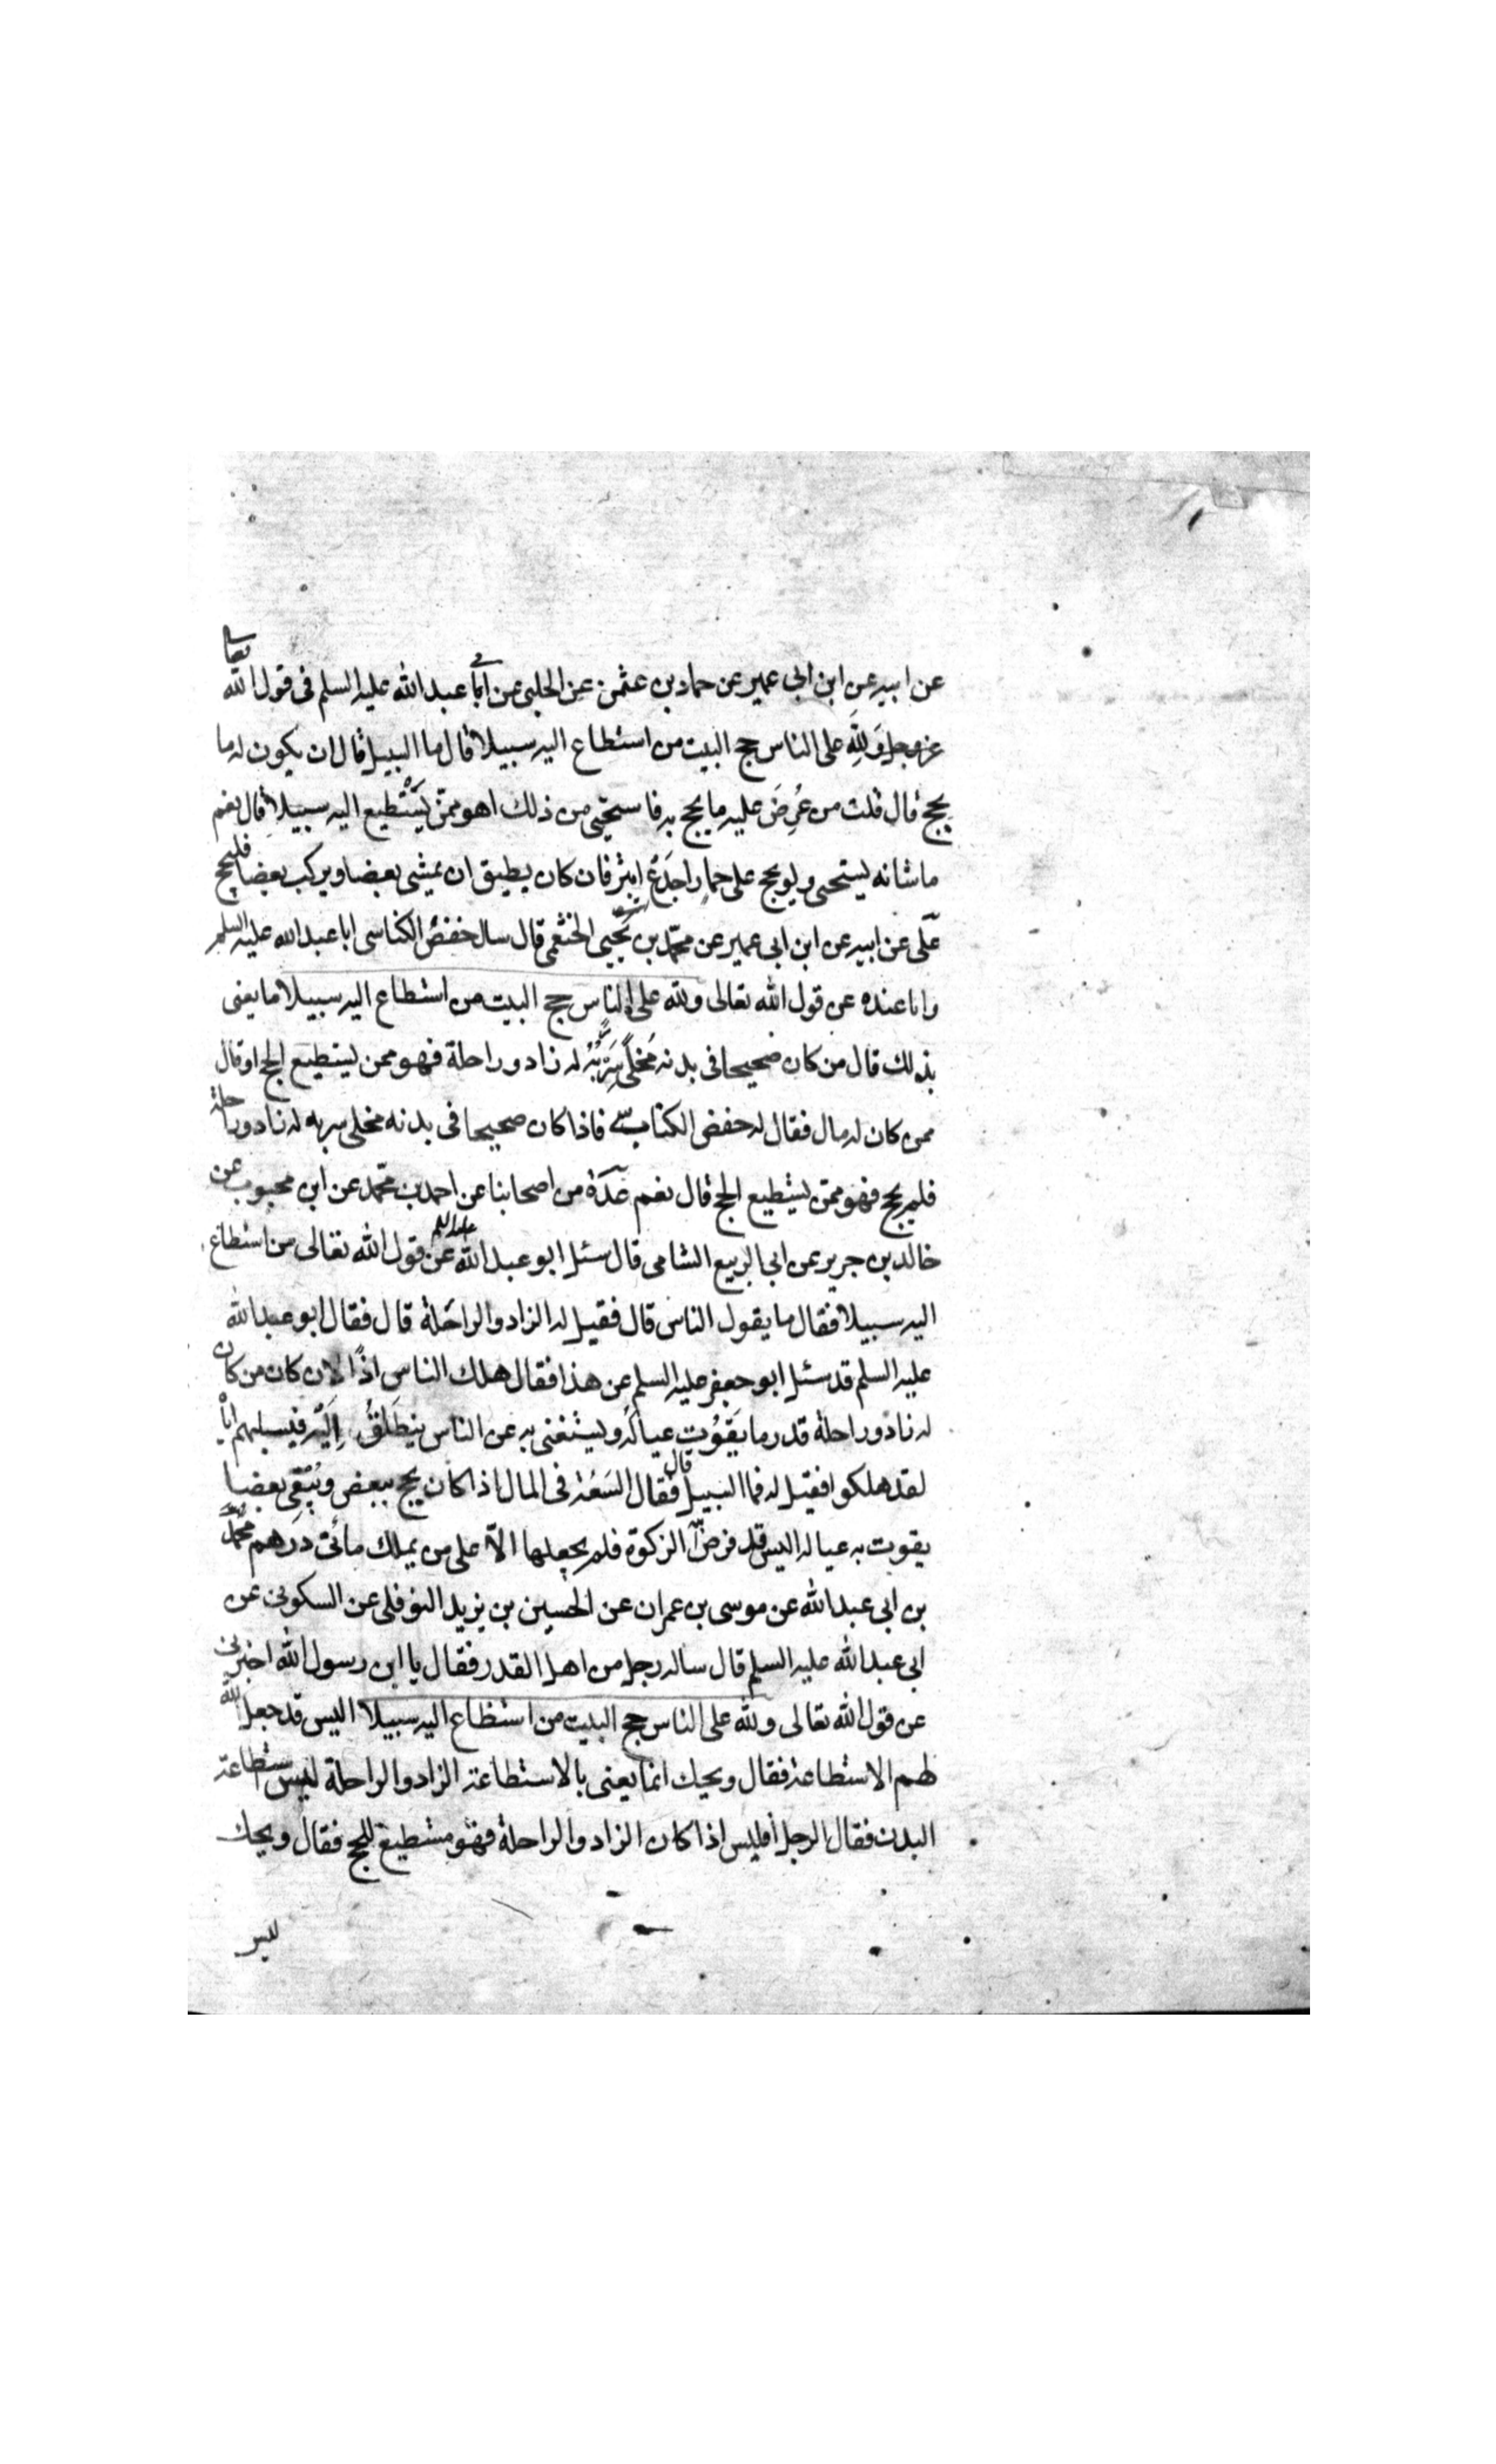 عن ابيه عن ابن ابى عمير عن حماد بن عثمن عن الحلبى عن ابى عبد الله عليه السلم فى قول الله تعالى
عز وجل وَلِلّهِ على الناس حج البيت من استطاع اليه سبيلا قال ما السبيل قال ان يكون له ما
يحج قال قلت من عُرِضَ عليه ما يحج به فاستحيى من ذلك اهو ممّن يَسْتطيع اليه سبيلا قال نعم
ما شانه يستحيى ولو يحج على حمار اجدع ابتر فان كان يطيق ان يمشى بعضا ويركب بعضا فليحج
علّى عن ابيه عن ابن ابى عمير عن محمّد بن يحيى الخثعمى قال سال حفصُ الكناسى ابا عبد الله عليه السلم
وانا عنده عن قول الله تعالى ولله على الناس حج البيت من استطاع اليه سبيلا ما يعنى
بذلك قال من كان صحيحا فى بدنه مُخلًى سَرْبُهُ له زاد وراحلة فهو ممن يستطيع الحج او قال
ممن كان له مال فقال له حفص الكناسى فاذا كان صحيحا فى بدنه مخلى سربه له زاد وراحلة
فلم يحج فهو ممّن يستطيع الحج قال نعم عدّة من اصحابنا عن احمد بن محمّد عن ابن محبوب عن
خالد بن جرير عن ابى الربيع الشامى قال سئل ابو عبد الله عليه السلم عن قول الله تعالى من استطاع
اليه سبيلا فقال ما يقول الناس قال فقيل له الزاد والراحَلة قال فقال ابو عبد الله
عليه السلم قد سئل ابو جعفر عليه السلم عن هذا فقال هلك الناس اذًا لان كان من كان
له زاد وراحلة قدر ما يَقُوْت عياله ويستغنى به عن الناس ينطَلقُ اِلَيْه فيسلبهم اياه
لقد هلكوا فقيل له فما السبيل قال فقال السَعَة فى المال اذا كان يحج ببعض ويُبْقِى بعضا
يقوت به عياله اليس قد فرض الله الزكوة فلم يجعلها الاّ على من يملك مائتى درهم محمّد
بن ابى عبد الله عن موسى بن عمران عن الحسين بن يزيد النوفلى عن السكونى عن
ابى عبد الله عليه السلم قال ساله رجل من اهل القدر فقال يا ابن رسول الله اخبرنى
عن قول الله تعالى ولله على الناس حج البيت من استطاع اليه سبيلا اليس قد جعل الله
لهم الاستطاعة فقال ويحك انما يعنى بالاستطاعة الزاد والراحلة ليس استطاعة
البدن فقال الرجل أفليس اذا كان الزاد والراحلة فهو مستطيع للحج فقال ويحك
ليس